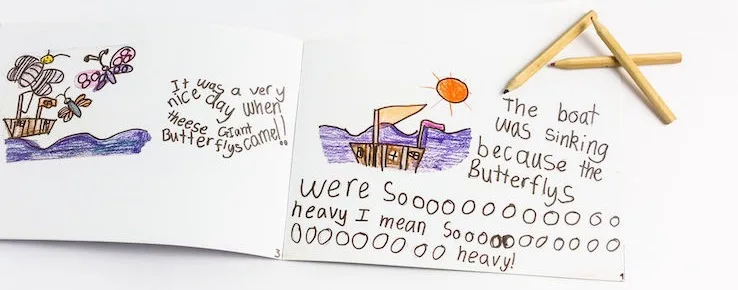 It was a very
nice day when
theese Giant
Butterflys came!!
3
The boat
was sinking
because the
Butterflys
were Soooooooooooooo
heavy I mean Soooooooooooo
oooooooooo heavy!
4